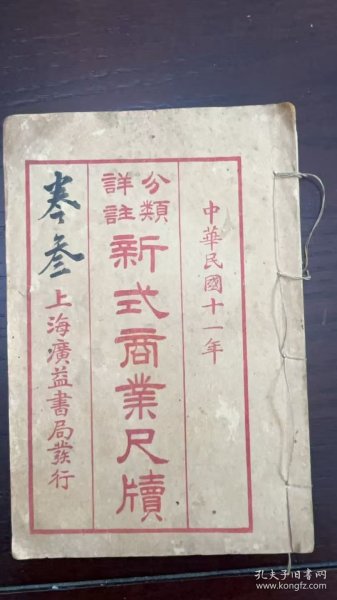 中華民國十一年
分類
詳註
新式商業尺牘
上海廣益書局發行
孔夫子旧书网